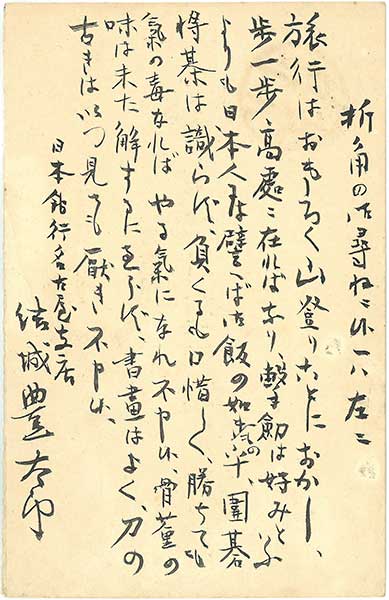 折角の御尋ねに候へば左ニ
旅行はおもしろく山登りことにおかし、
歩一歩高處ニ在ればなり、撃劍は好みと云ふ
よりも日本人には譬へば御飯の如きか、圍碁
将棊は識らず、負くるも口惜しく、勝ちても
氣の毒なれば やる氣になれ不申候、骨董の
味は未た解するに至らず、書畫はよく、刀の
古きはいつ見ても厭き不申候、
日本銀行名古屋支店
結城豊太郎